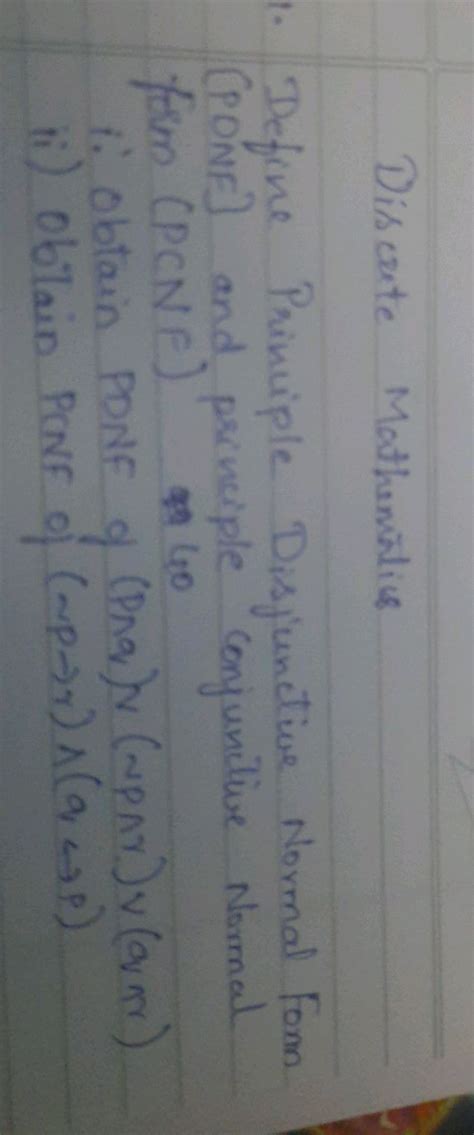 Discrete Mathematics
1. Define Principle Disjunctive Normal Form
(PDNF) and principle conjunctive Normal
form (PCNF)
i. obtain PDNF of (p∧q)∨(~p∧r)∨(q∧r)
ii) obtain PCNF of (~p→r)∧(q↔p)